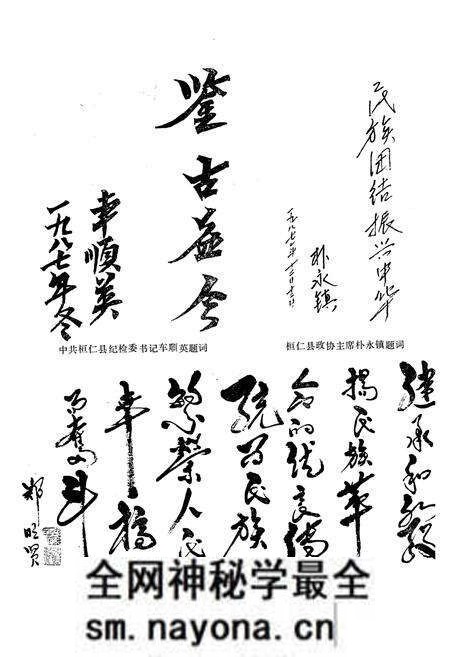 民族团结振兴中华
朴永镇
桓仁县政协主席朴永镇题词
鉴古益今
车顺英
一九八七年冬
中共桓仁县纪检委书记车顺英题词
继承和发
揚民族革
命的优良传
统为民族
繁荣人民
幸福
而奋斗
全网神秘学最全
sm.nayona.cn